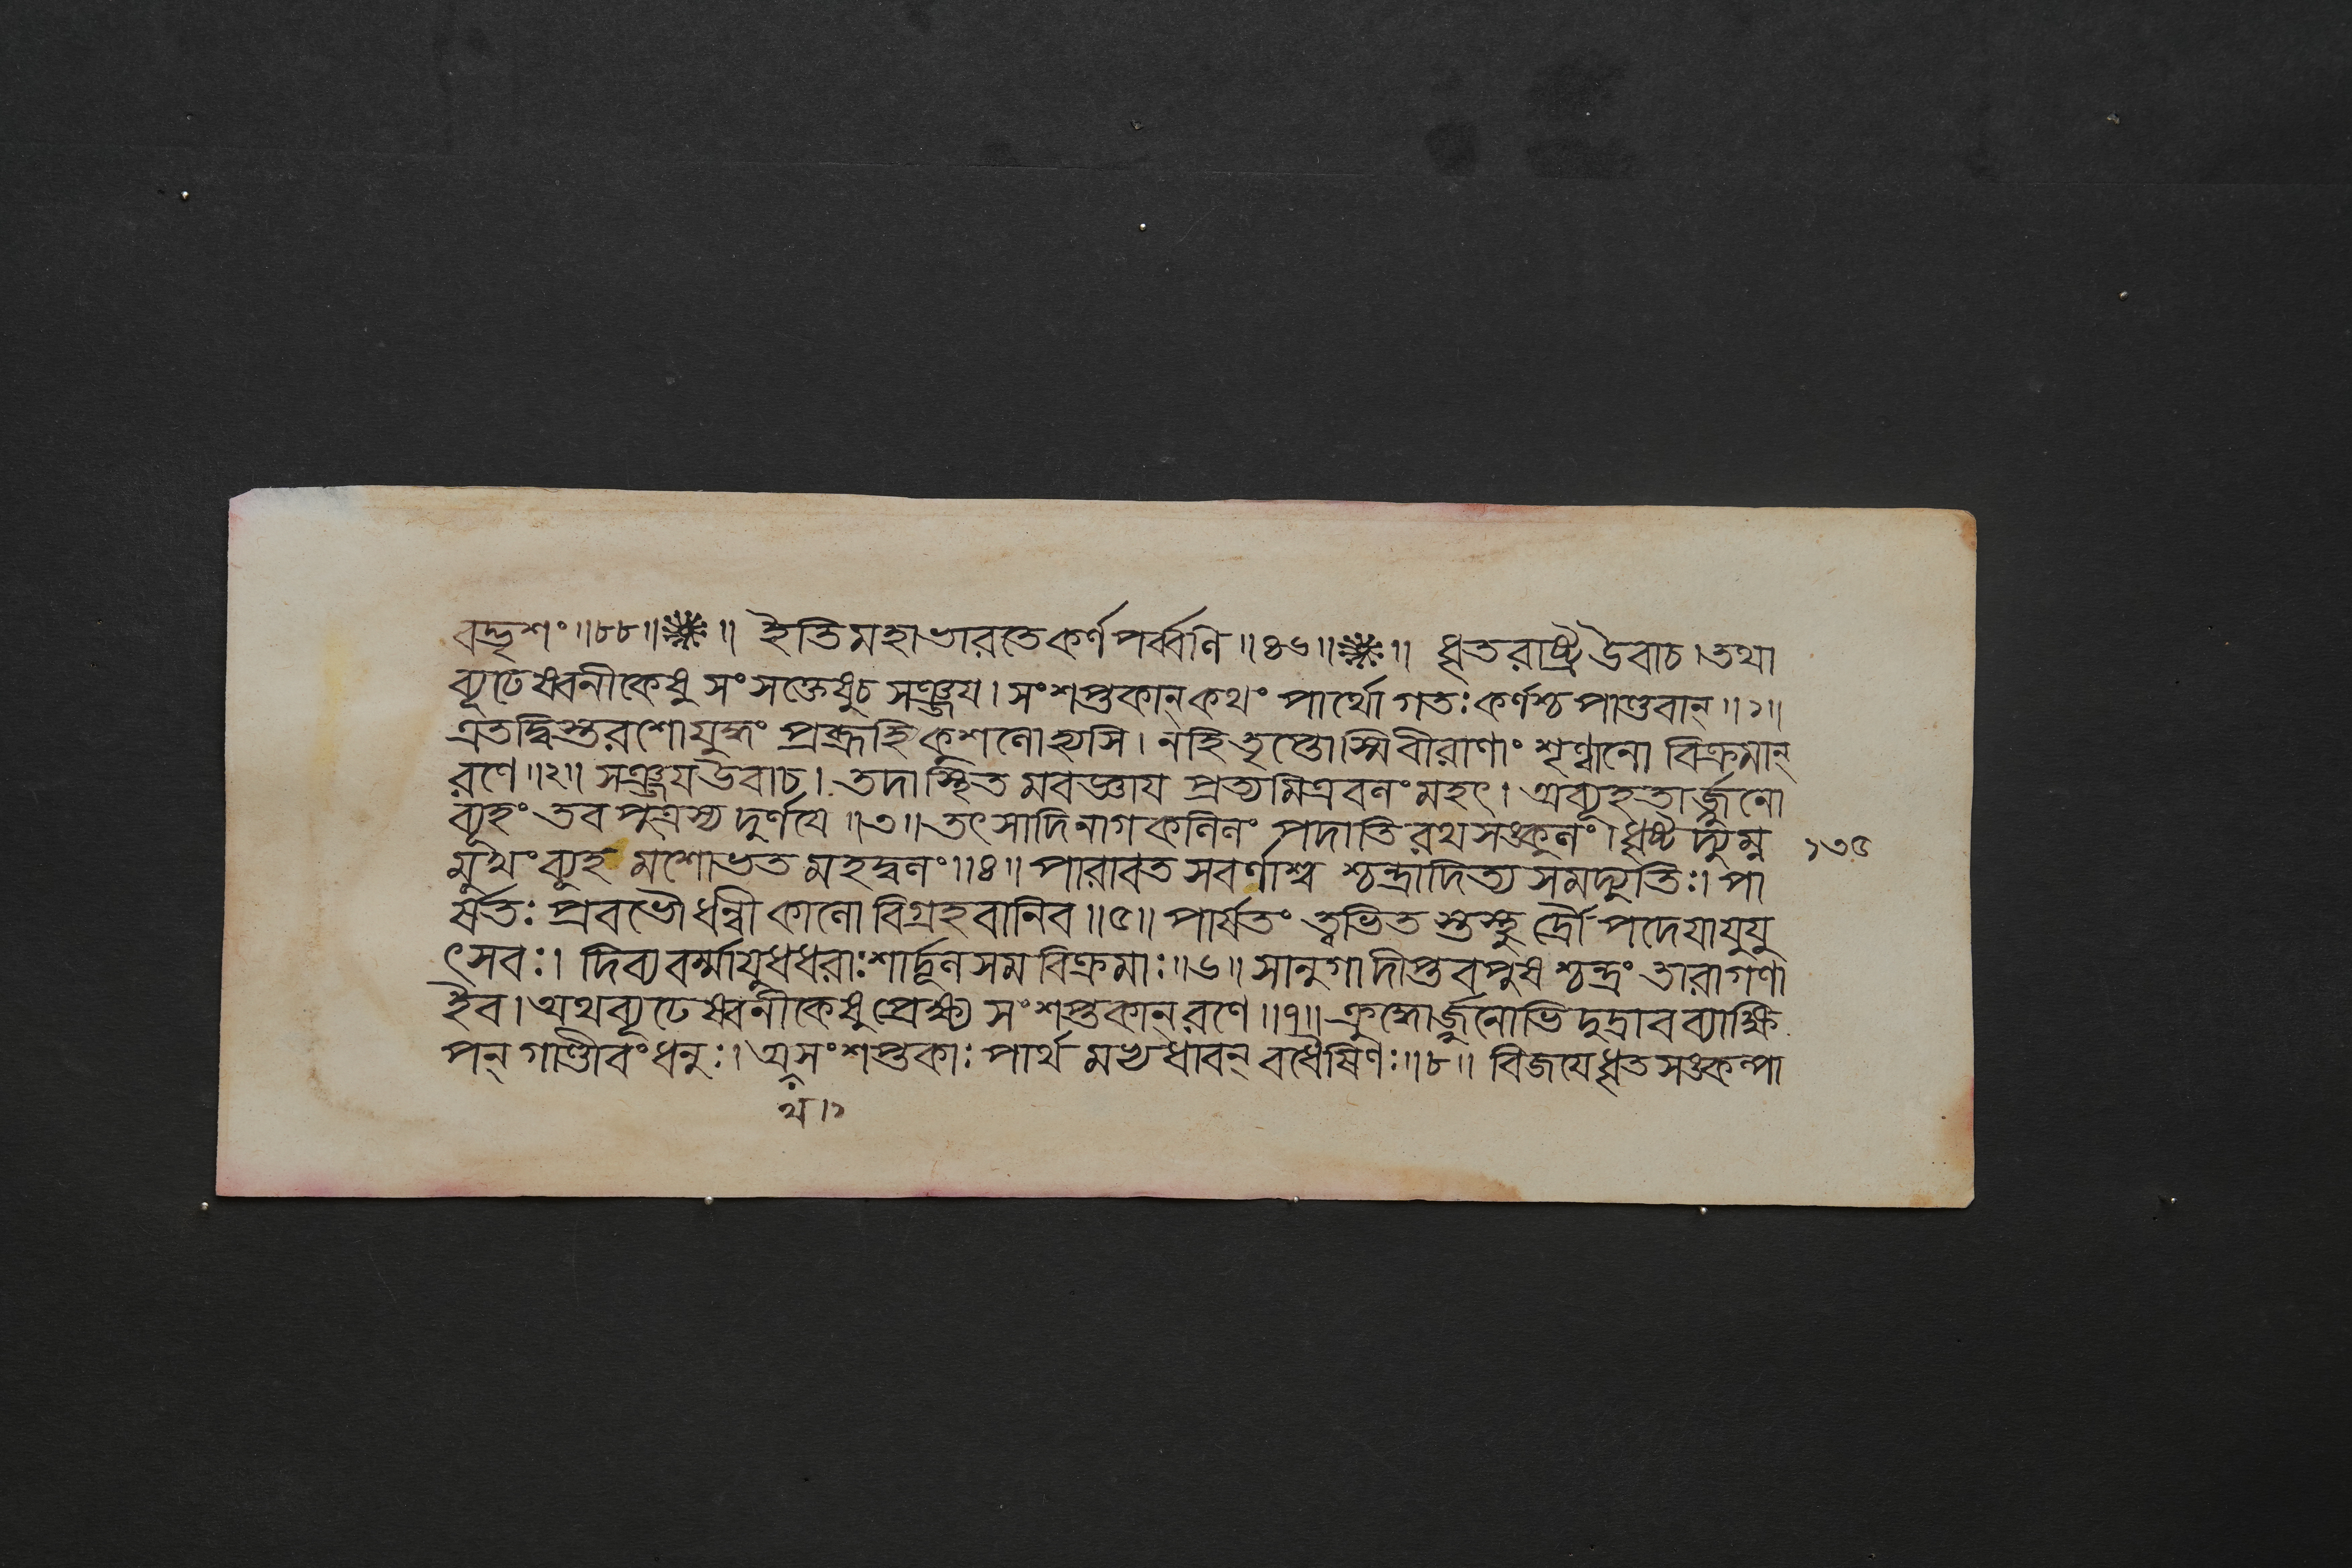 বদ্ভৃশং॥৮৮॥❋॥ ইতি মহাভারতে কর্ণপর্ব্বণি॥৪৬॥❋॥ ধৃতরাষ্ট্র উবাচ। তথা
ব্যূঢেষ্বনীকেষু সংসক্তেষু চ সঞ্জয। সংশপ্তকান্ কথং পার্থো গতঃ কর্ণশ্চ পাণ্ডবান্॥১॥
এতদ্বিস্তরশো যুদ্ধং প্রব্রূহি কুশলোহ্যসি। ন হি তৃপ্তোস্মি বীরাণাং শৃণ্বানো বিক্রমান্
রণে॥২॥ সঞ্জয উবাচ। তদাস্থিতমবজ্ঞায প্রত্যমিত্রবলং মহৎ। অব্যূহতার্জ্জুনো
ব্যূহং তব পুত্রস্য দুর্ণযে॥৩॥ তৎ সাদিনাগকলিলং পদাতিরথসঙ্কুলং। ধৃষ্টদ্যুম্ন
মুখং ব্যূহমশোভত মহদ্বলং॥৪॥ পারাবতসবর্ণাশ্ব শ্চন্দ্রাদিত্যসমদ্যুতিঃ। পা
র্ষতঃ প্রবভৌ ধন্বী কালো বিগ্রহবানিব॥৫॥ পার্ষতং ত্বভিতস্তস্থু র্দ্রৌপদেযা যুযু
ৎসবঃ। দিব্যবর্ম্মাযুধধরাঃ শার্দ্দূলসমবিক্রমাঃ॥৬॥ সানুগা দীপ্তবপুষ শ্চন্দ্রং তারাগণা
ইব। অথ ব্যূঢেষ্বনীকেষু প্রেক্ষ্য সংশপ্তকান্ রণে॥৭॥ ক্রুদ্ধোর্জ্জুনোভিদুদ্রাব ব্যাক্ষি
পন্ গাণ্ডীবং ধনুঃ। অসংশপ্তকাঃ পার্থমভ্যধাবন্ বধৈষিণঃ॥৮॥ বিজযে ধৃতসঙ্কল্পা
থ।১
১৩৫